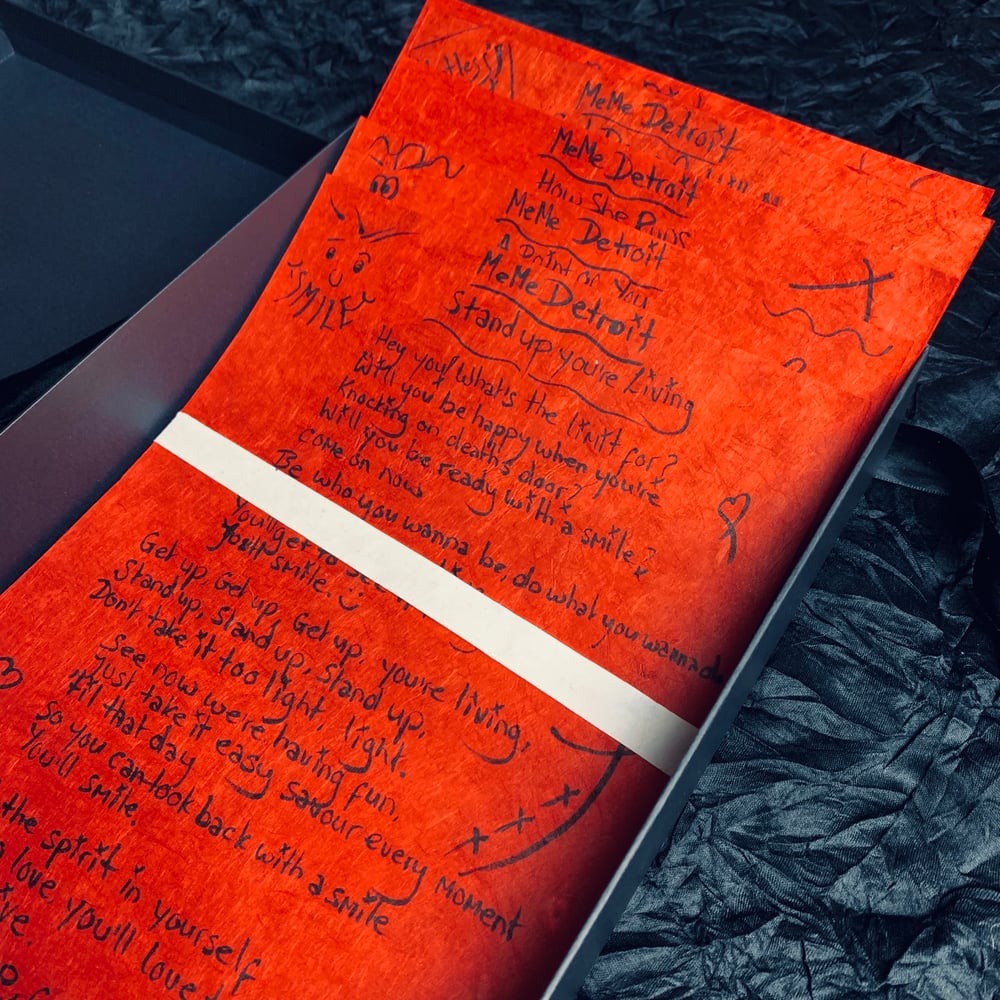 MeMe Detroit
MeMe Detroit
How She Runs
MeMe Detroit
A Point of You
MeMe Detroit
Stand up you're Living
SMILE
Hey you! What's the limit for?
Will you be happy when you're
Knocking on death's door?
Will you be ready with a smile?
come on now
Be who you wanna be, do what you wanna do
You'll get to
your smile.
Get up, Get up, Get up, you're living,
Stand up, stand up, stand up,
Don't take it too light, light.
See now we're having fun,
Just take it easy savour every moment
till that day
so you can look back with a smile
You'll smile.
the spirit in yourself
love you'll love